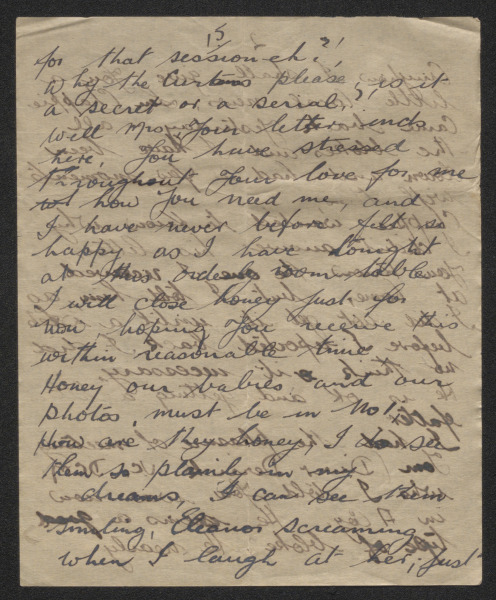 15
for that session eh?!
Why the Curtains please, is it
a secret or a serial?
will Mrs, Your letter ends
here, You have stressed
throughout Your love for me
how You need me, and
I have never before felt so
happy as I have tonight
at this ordery room table
I will close honey just for
now hoping You receive this
within reasonable time
Honey our babies, and our
photos, must be in No!
How are they honey, I do see
them so plainly in my
dreams, I can see them
smiling, Eleanor screaming
when I laugh at her, just